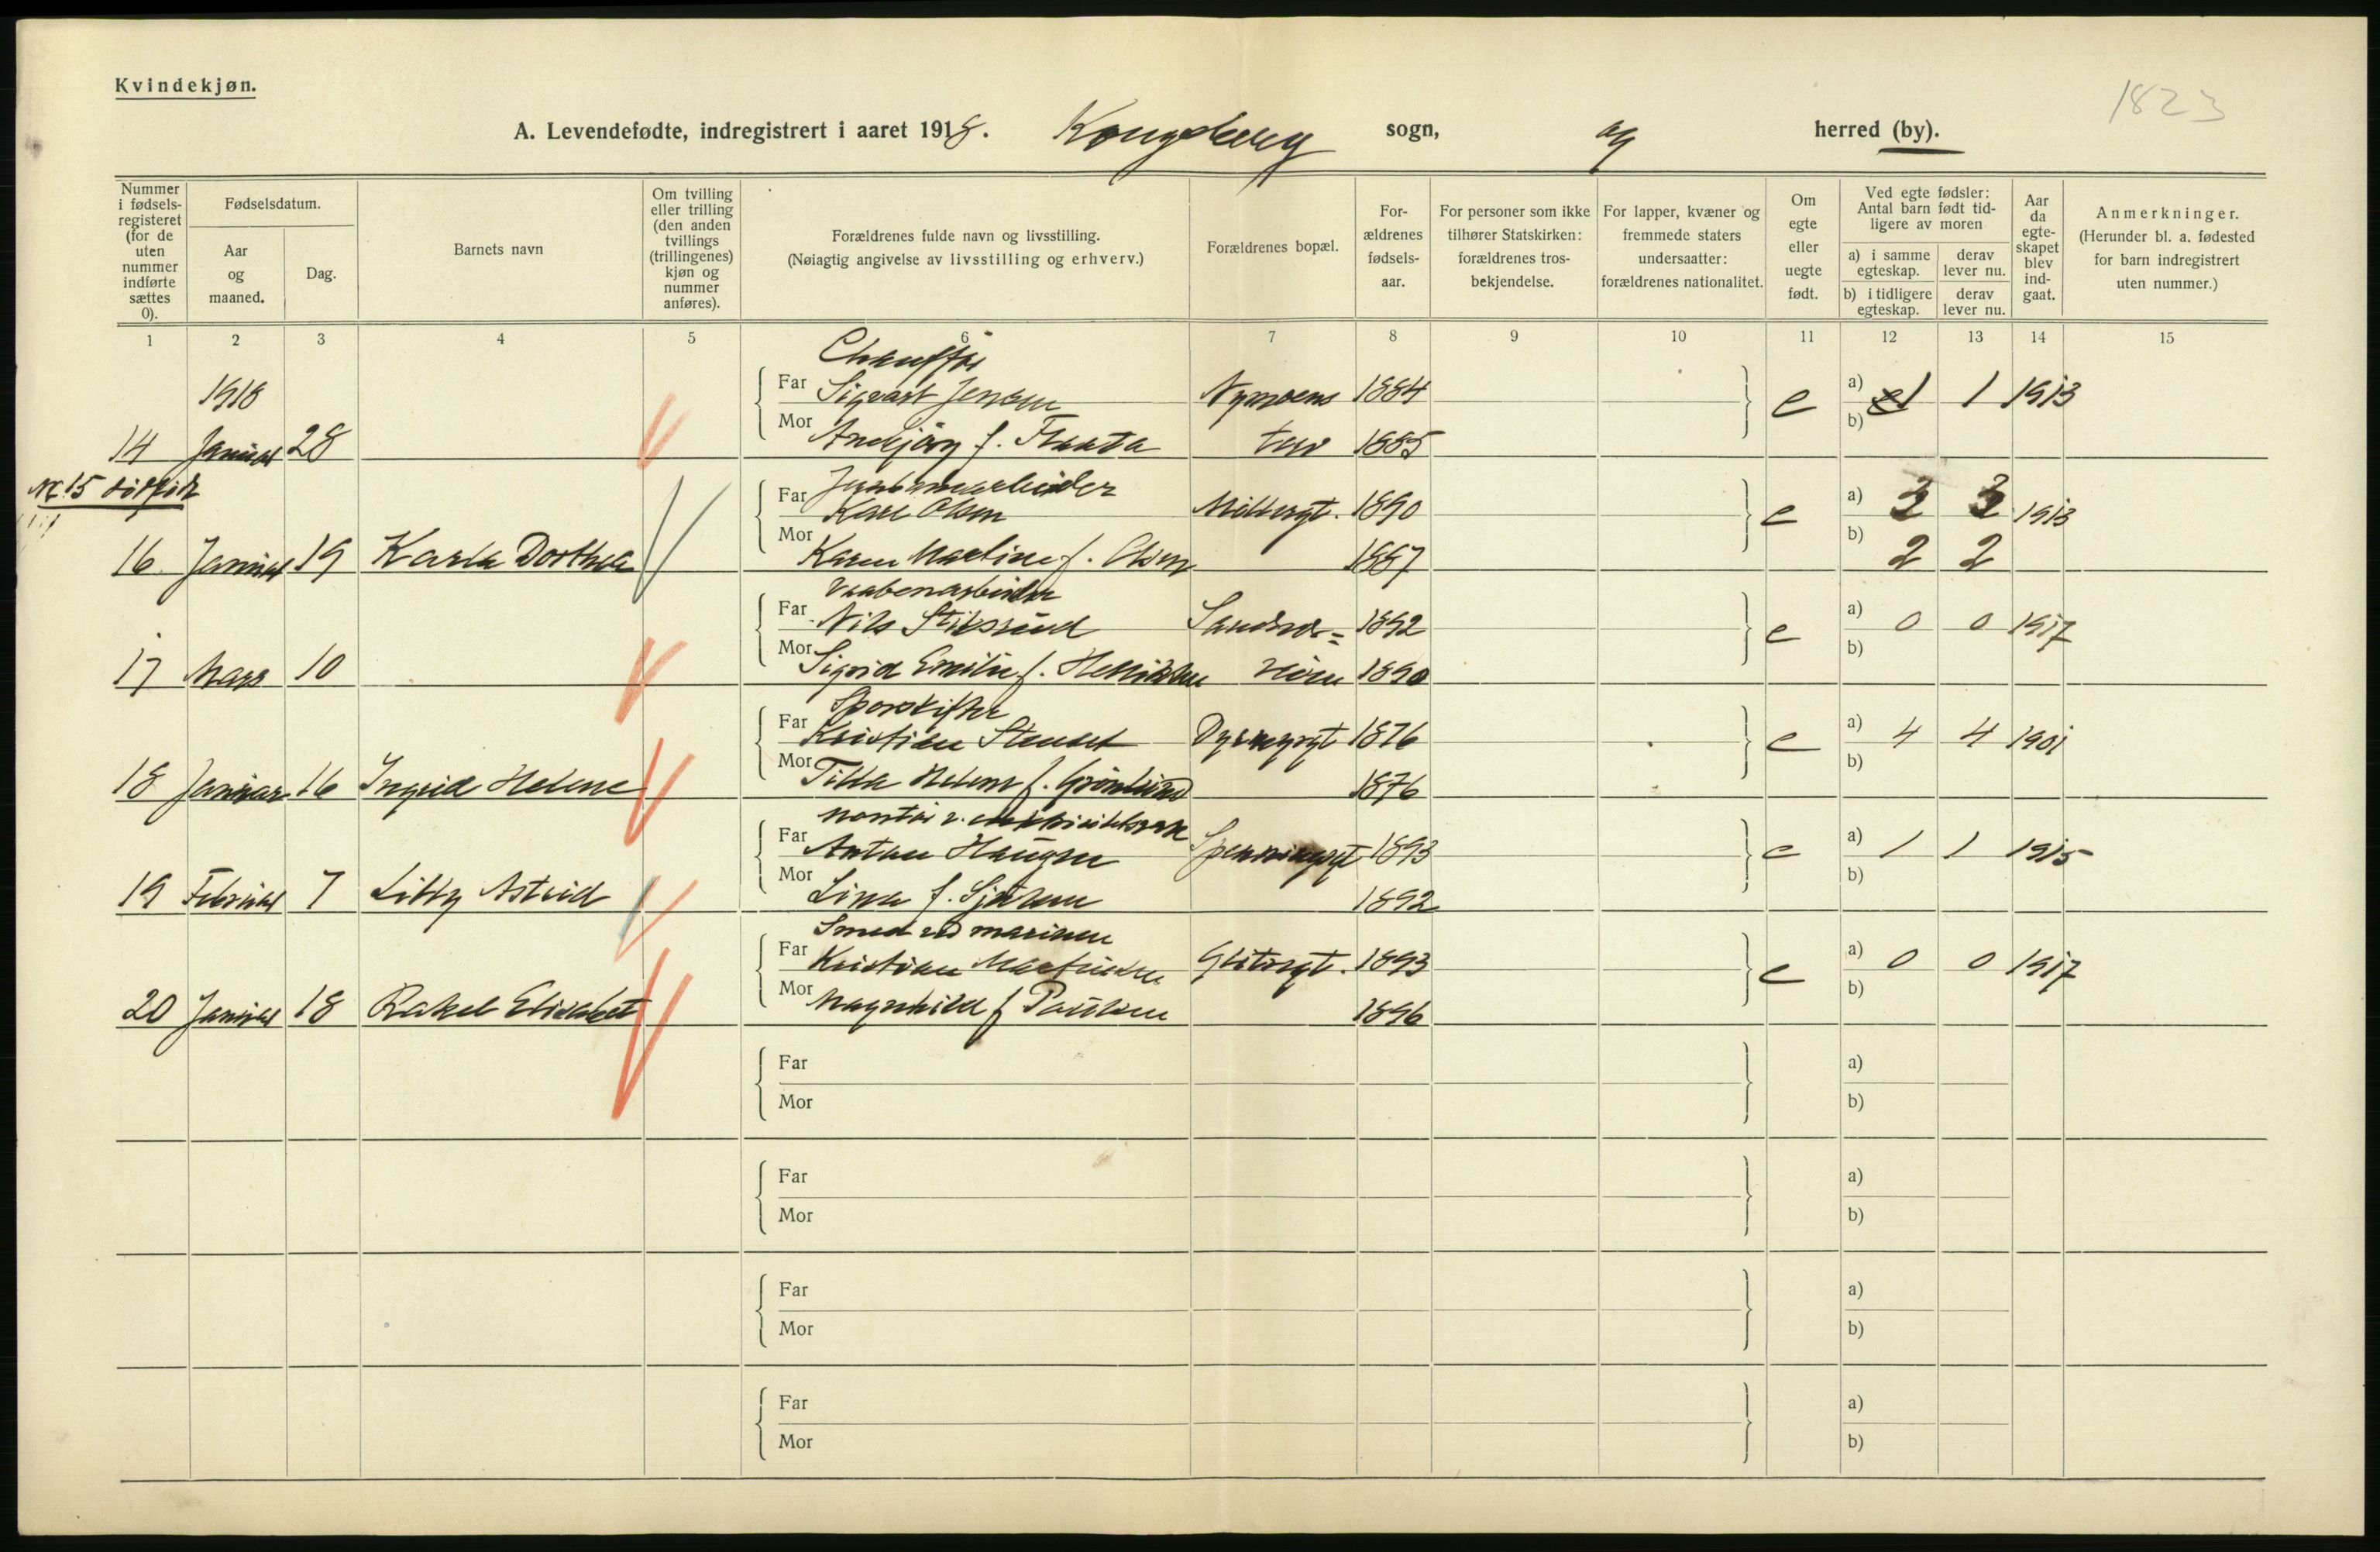 Kvindekjøn.
1823
A. Levendefødte, indregistrert i aaret 1918. Kongsberg sogn, og herred (by).
Nummer i fødselsregisteret (for de uten nummer indførte sættes 0).
Fødselsdatum.
Aar og maaned.
Dag.
Barnets navn
Om tvilling eller trilling (den anden tvillings (trillingenes) kjøn og nummer anføres).
Forældrenes fulde navn og livsstilling.
(Nøiagtig angivelse av livsstilling og erhverv.)
Forældrenes bopæl.
Forældrenes fødselsaar.
For personer som ikke tilhører Statskirken: forældrenes trosbekjendelse.
For lapper, kvæner og fremmede staters undersaatter: forældrenes nationalitet.
Om egte eller uegte født.
Ved egte fødsler: Antal barn født tidligere av moren
a) i samme egteskap.
derav lever nu.
b) i tidligere egteskap.
derav lever nu.
Aar da egteskapet blev indgaat.
Anmerkninger.
(Herunder bl. a. fødested for barn indregistrert uten nummer.)
1 2 3 4 5 6 7 8 9 10 11 12 13 14 15
Chauffør
1918 Far Sigvart Jensen 1884 e a) 1 1 1913
14 Januar 28 Mor f. 1885 b)
Nr. 15 dødfødt
Far Karl Olsen Møllergt. 1890 e a) 3 3 1913
16 Januar 19 Karla Dorthea Mor Karen Martine f. Olsen 1887 b) 2 2
Vaabenarbeider
Far Nils Stilsrud 1892 e a) 0 0 1917
17 Mars 10 Mor Sigrid Emilie f. 1890 b)
Sporskifter
Far Kristian Stenset Dyrmyrgt 1876 e a) 4 4 1901
18 Januar 16 Ingrid Helene Mor Tilda Helene f. Grønlund 1876 b)
Montør v.
Far Anton Haugen 1893 e a) 1 1 1915
19 Februar 7 Lilly Astrid Mor Lina f. 1892 b)
Smed ved marinen
Far Kristian Martinsen Glitregt. 1893 e a) 0 0 1917
20 Januar 18 Rakel Elisabet Mor Magnhild f Paulsen 1896 b)
Far a)
Mor b)
Far a)
Mor b)
Far a)
Mor b)
Far a)
Mor b)